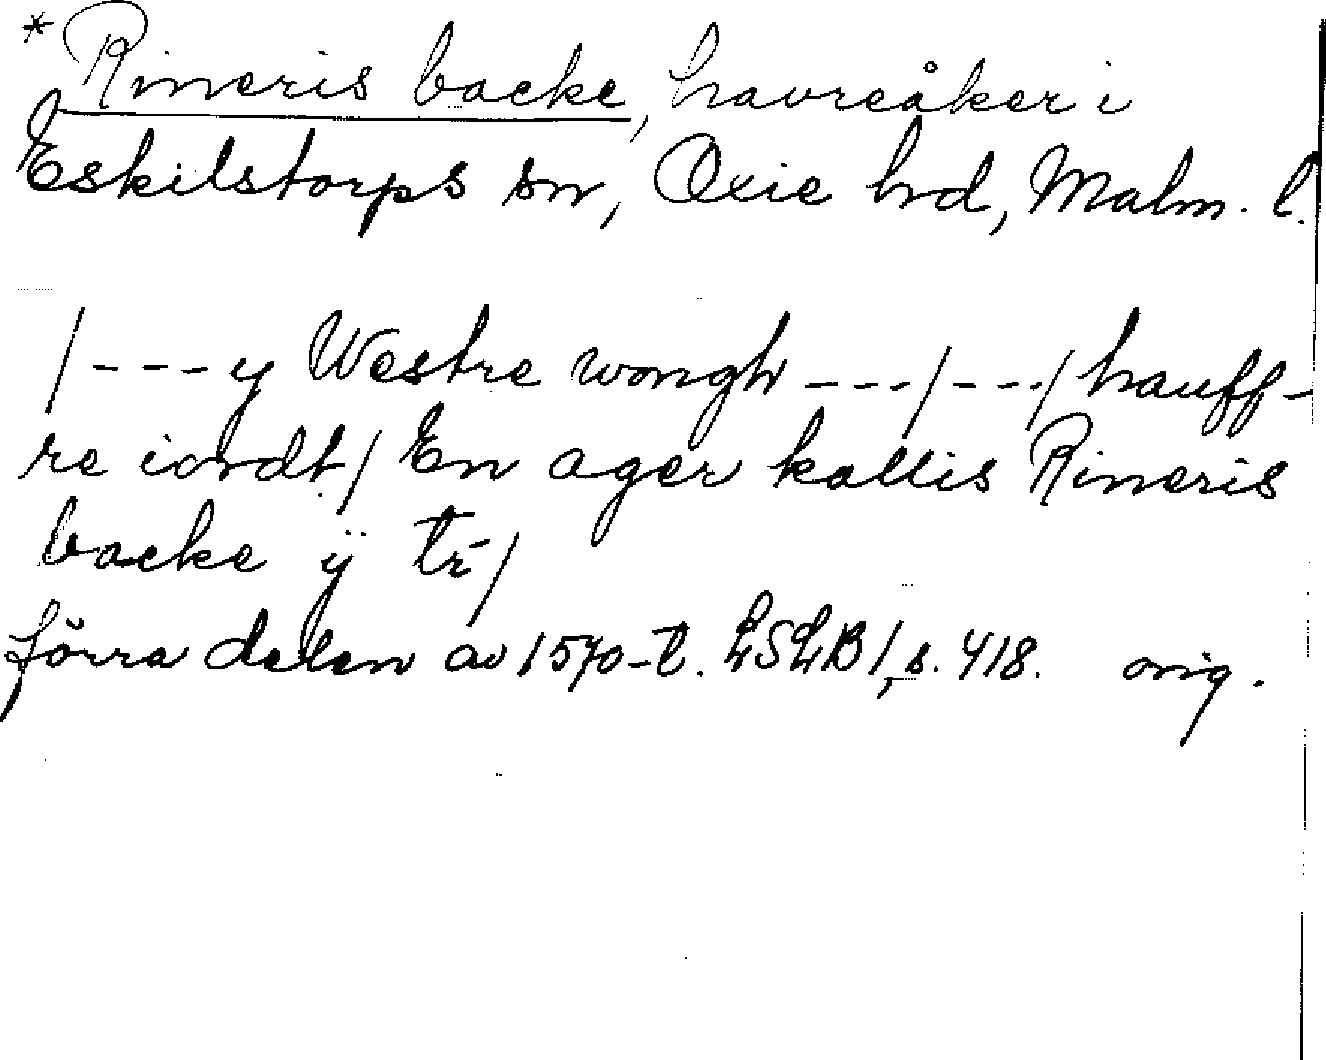 * Rineris backe, havreåker i
Eskilstorps sn, Oxie hrd, Malm. l.
/---y Westre wongh ---/---/ hauff-
re iordt/ En ager kallis Rineris
backe ÿ tr-/
förra delen av 1570-t. LSLB 1, s. 418. orig.